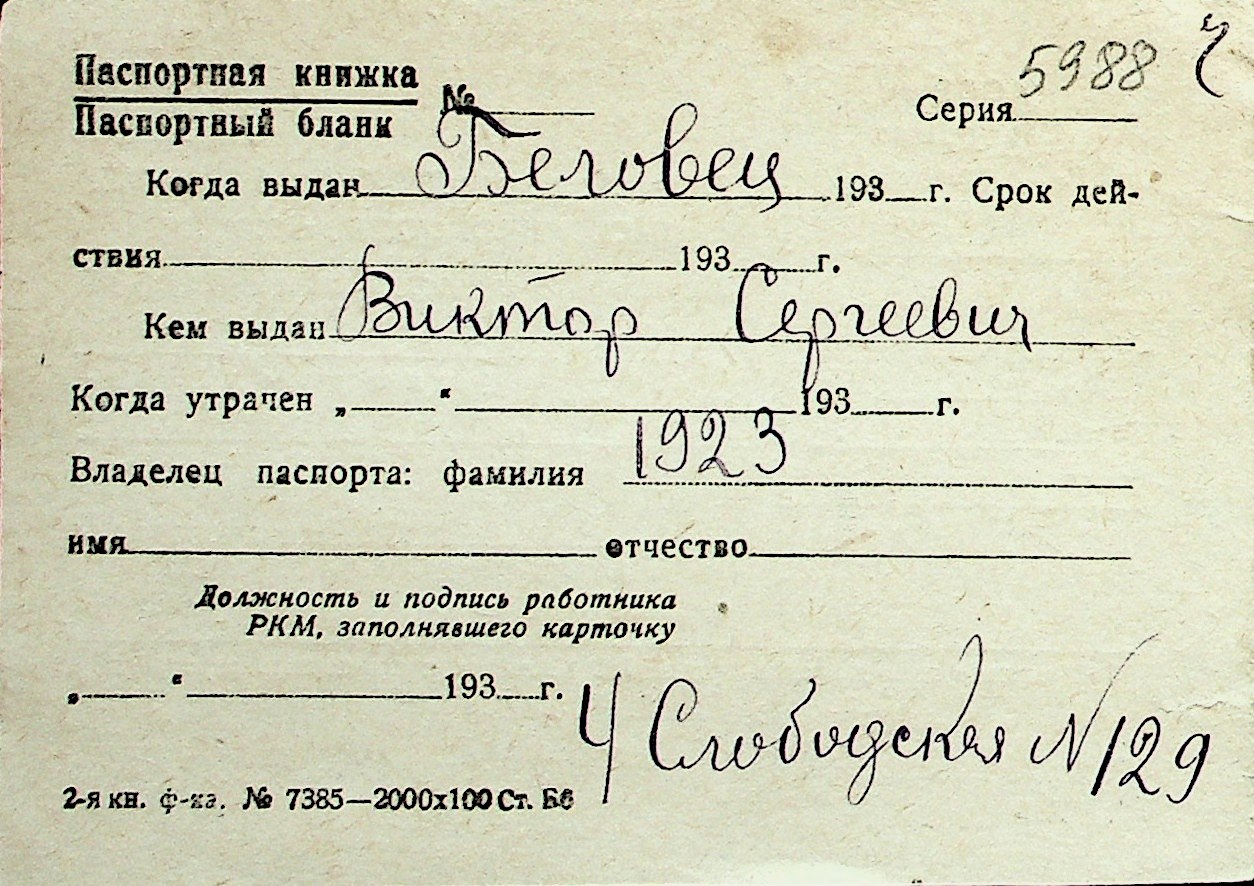 Паспортная книжка
Паспортный бланк № Серия 5988
Когда выдан Беловец 193 г. Срок дей-
ствия 193 г.
Кем выдан Виктор Сергеевич
Когда утрачен „ “ 193 г.
Владелец паспорта: фамилия 1923
имя отчество
Должность и подпись работника
РКМ, заполнявшего карточку
„ “ 193 г.
4 Слободская N 129
2-я кн. ф-ка. № 7385—2000х100 Ст. Бб